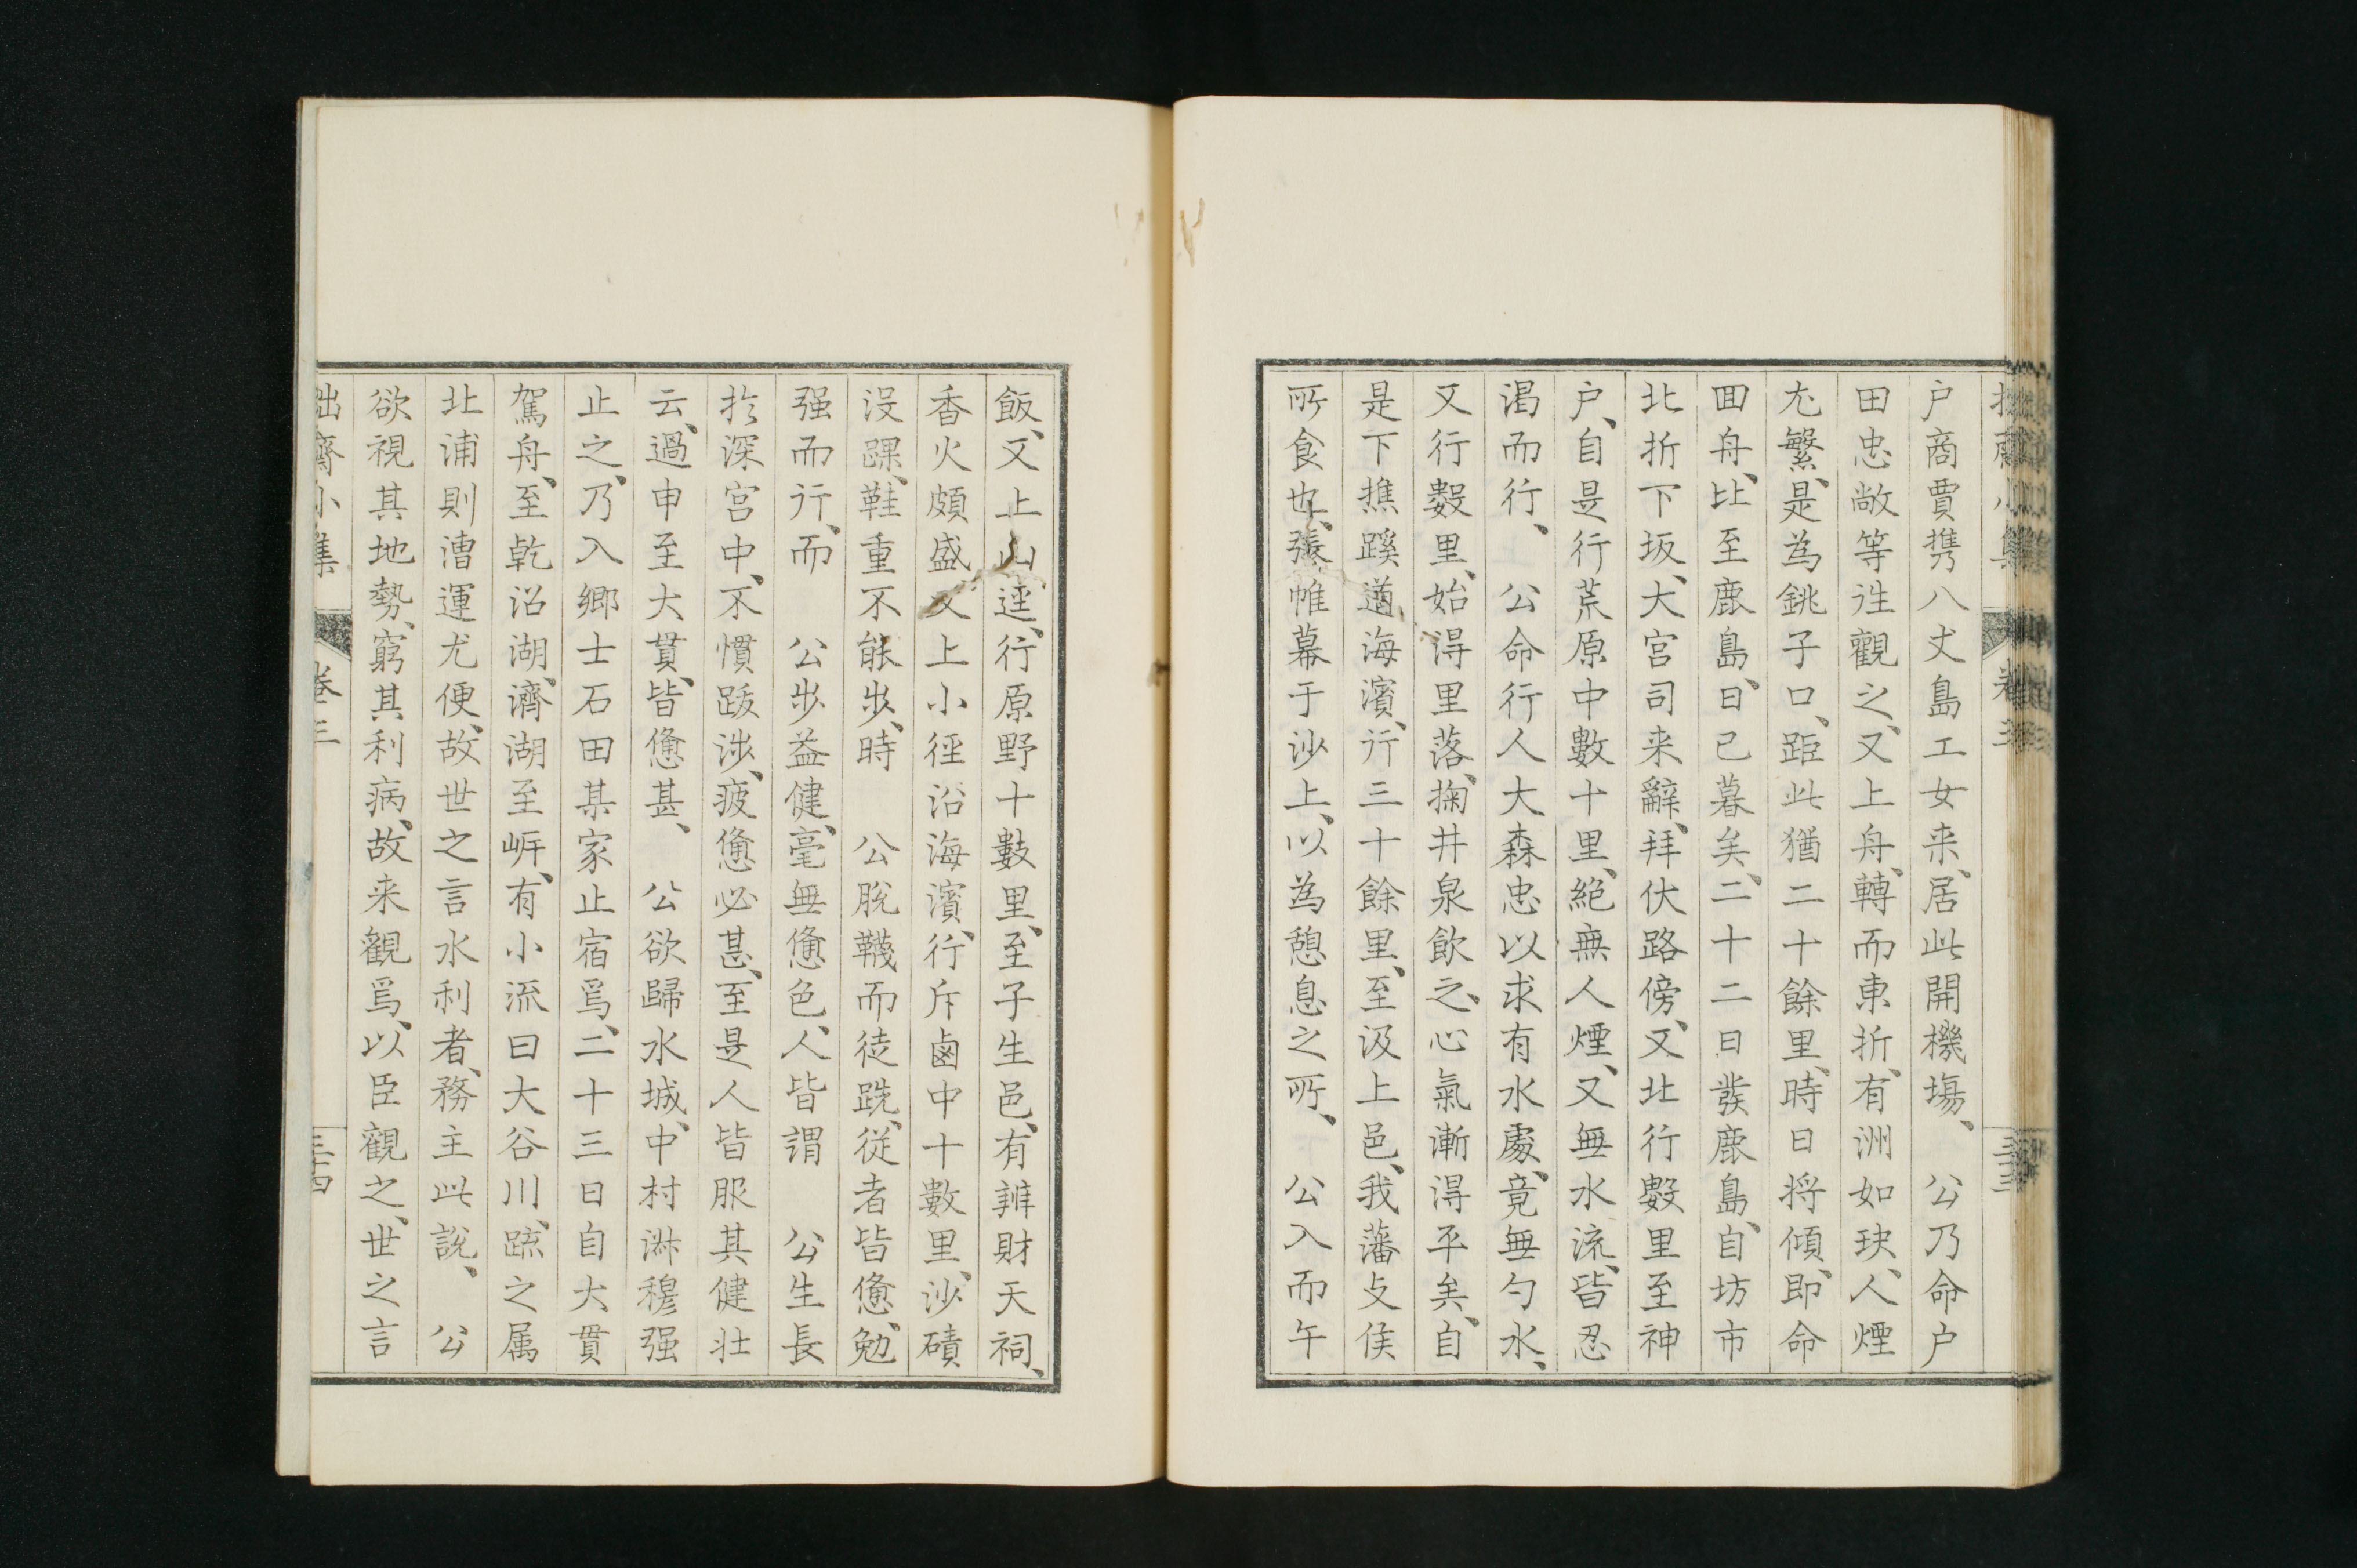 戸商賈携八丈島工女来、居此開機場、　公乃命戸
田忠敞等往觀之、又上舟、轉而東折、有洲如玦、人煙
尤繁、是為銚子口、距此猶二十餘里、時日将傾、即命
囬舟、比至鹿島、日已暮矣、二十二日發鹿島、自坊市
北折下坂、大宮司来辭、拜伏路傍、又北行數里至神
戸、自是行荒原中數十里、絶無人煙、又無水流、皆忍
渇而行、　公命行人大森忠以求有水處、竟無勺水、
又行數里、始得里落、掬井泉飲之、心氣漸得平矣、自
是下樵蹊遵海濱、行三十餘里、至汲上邑、我藩支侯
所食也、張帷幕于沙上、以為憩息之所、　公入而午
飯、又上山逕、行原野十數里、至子生邑、有辨財天祠、
香火頗盛、又上小徑沿海濱、行斥鹵中十數里、沙磧
没踝、鞋重不能歩、時　公脱韈而徒跣、従者皆憊、勉
强而行、而　公歩益健、毫無憊色、人皆謂　公生長
於深宮中、不慣跋渉、疲憊必甚、至是人皆服其健壮
云、過申至大貫、皆憊甚、　公欲歸水城、中村淋穆强
止之、乃入郷士石田某家止宿焉、二十三日自大貫
駕舟、至乾沼湖、濟湖至㟁、有小流曰大谷川、疏之属
北浦則漕運尤便、故世之言水利者、務主此説、　公
欲視其地勢、窮其利病、故来觀焉、以臣觀之、世之言
拙齋小集　卷三　三十四